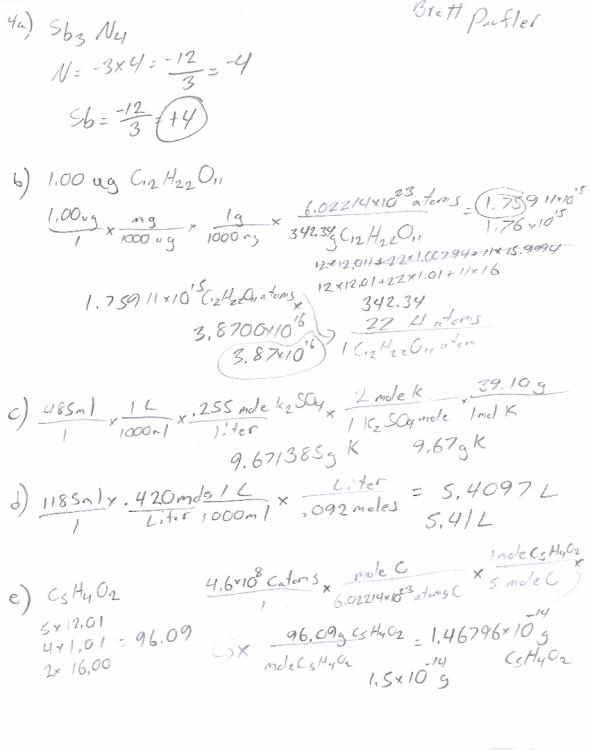 4a) Sb3 N4
Brett Pufler
N = -3x4 = -12/3 = -4
Sb = -12/3 = +4
b) 1.00 ug C12H22O11
1.00ug/1 x mg/1000 ug x 1g/1000 mg x 6.02214x10^23 atoms/342.34g C12H22O11 = 1.75911x10^15
1.76x10^15
12x12.011+22x1.00794+11x15.9994
12x12.01+22x1.01+11x16
342.34
1.75911x10^15 C12H22O11 atoms x 22 H atoms/1 C12H22O11 atom
3.8700x10^16
3.87x10^16
c) 485ml/1 x 1 L/1000ml x .255 mole K2SO4/liter x 2 mole K/1 K2SO4 mole x 39.10 g/1 mol K
9.671385g K 9.67g K
d) 1185ml/1 x .420 mols/Liter 1 L/1000ml x Liter/.092 moles = 5.4097 L
5.41 L
e) C5H4O2 4.6x10^8 C atoms/1 x mole C/6.02214x10^23 atoms C x 1 mole C5H4O2/5 mole C x
5x12.01
4x1.01 = 96.09
2x16.00
x 96.09g C5H4O2/mole C5H4O2 = 1.46796x10^-14 g
C5H4O2
1.5x10^-14 g